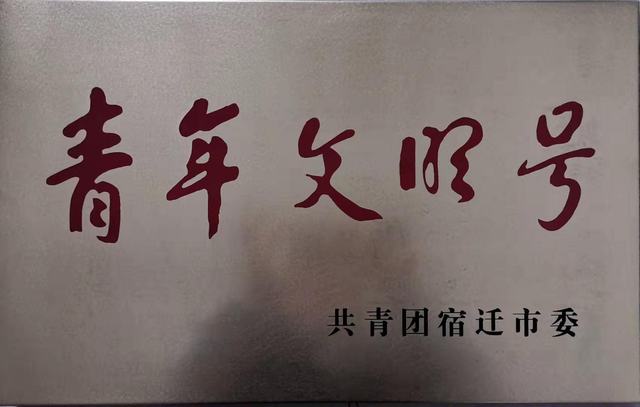 青年文明号
共青团宿迁市委